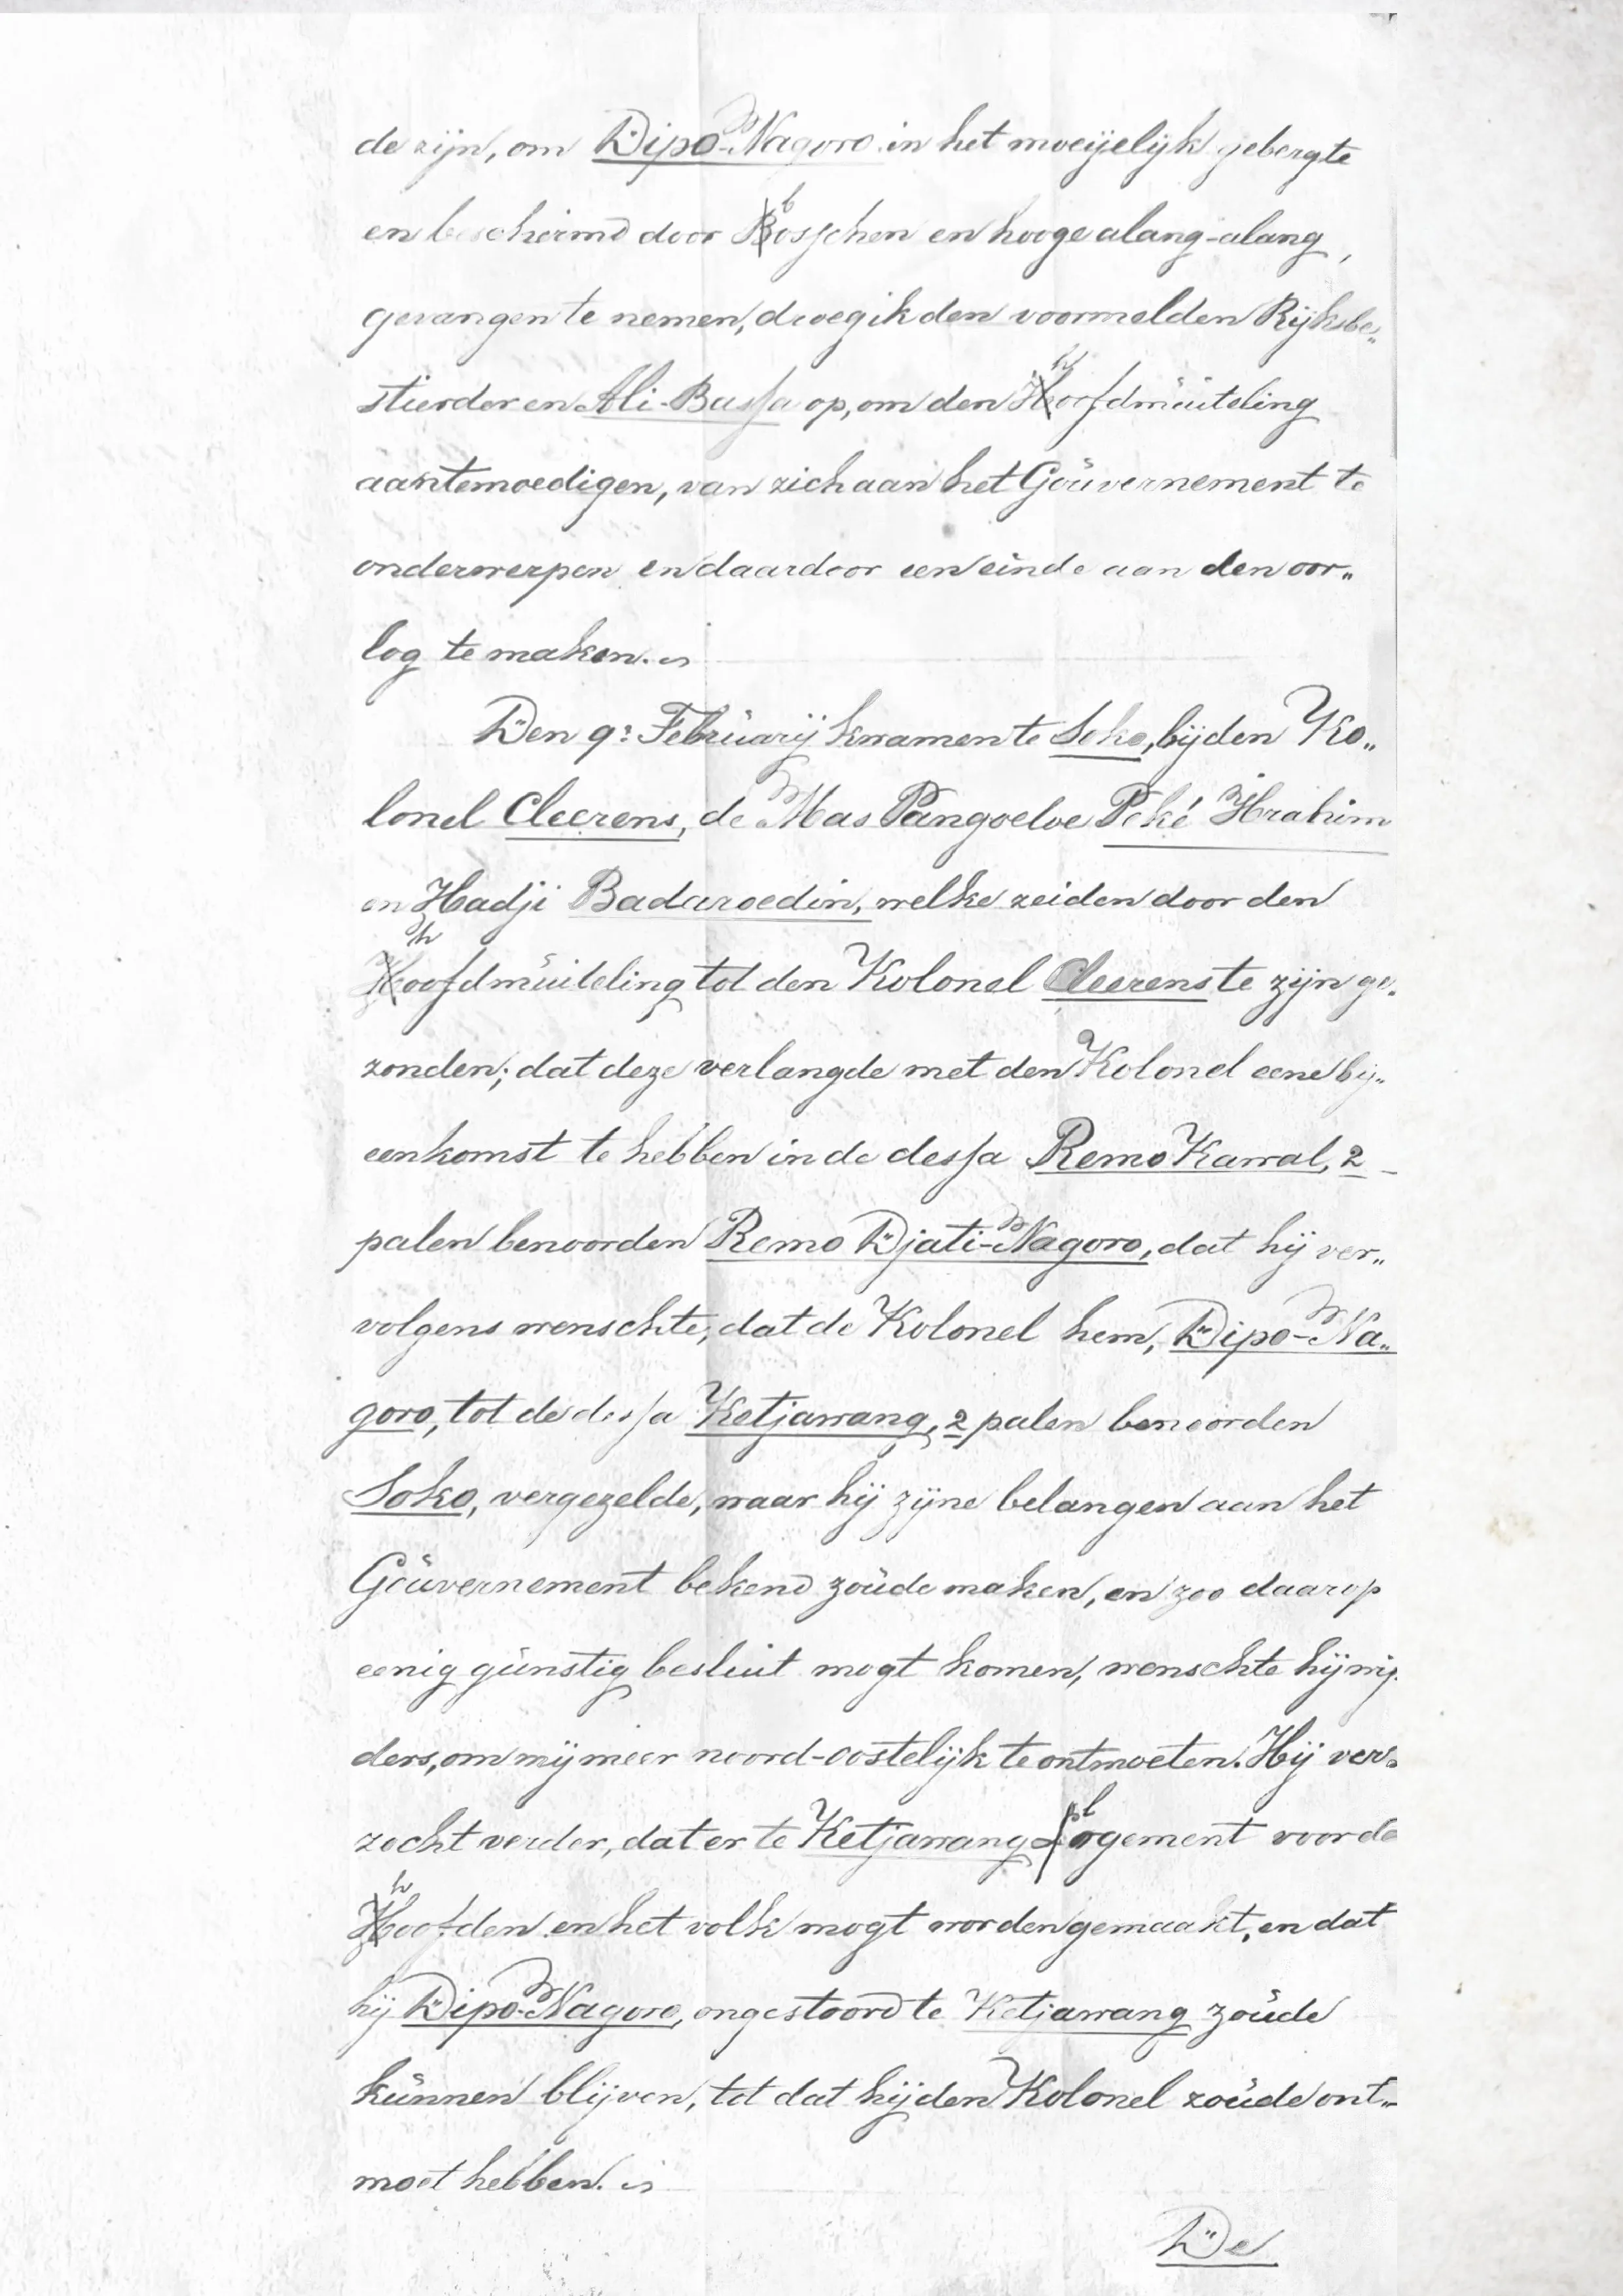 de zijn, om Dipo-Nagoro in het moeijelijk gebergte
en beschermd door bosschen en hooge alang-alang,
gevangen te nemen, droeg ik den voormelden Rijksbe„
stierder en Ali-Bassa op, om den hoofdmuiteling
aantemoedigen, van zich aan het Gouvernement te
onderwerpen en daardoor een einde aan den oor„
log te maken.
Den 9: Februarij kwamen te Soko, bij den Ko„
lonel Cleerens, de Mas Pangoeloe Peké Ibrahim
en Hadji Badaroedin, welke zeiden door den
hoofdmuiteling tot den Kolonel Cleerens te zijn ge„
zonden; dat deze verlangde met den Kolonel eene bij„
eenkomst te hebben in de dessa Remo Kawal, 2
palen benoorden Remo Djati-Nagoro, dat hij ver„
volgens wenschte, dat de Kolonel hem, Dipo-Na„
goro, tot de dessa Ketjawang, 2 palen benoorden
Soko, vergezelde, waar hij zijne belangen aan het
Gouvernement bekend zoude maken, en zoo daarop
eenig gunstig besluit mogt komen, wenschte hij wij„
ders, om mij meer noord-oostelijk te ontmoeten. Hij ver„
zocht verder, dat er te Ketjawang logement voor de
hoofden en het volk mogt worden gemaakt, en dat
hij Dipo-Nagoro, ongestoord te Ketjawang zoude
kunnen blijven, tot dat hij den Kolonel zoude ont„
moet hebben.
De